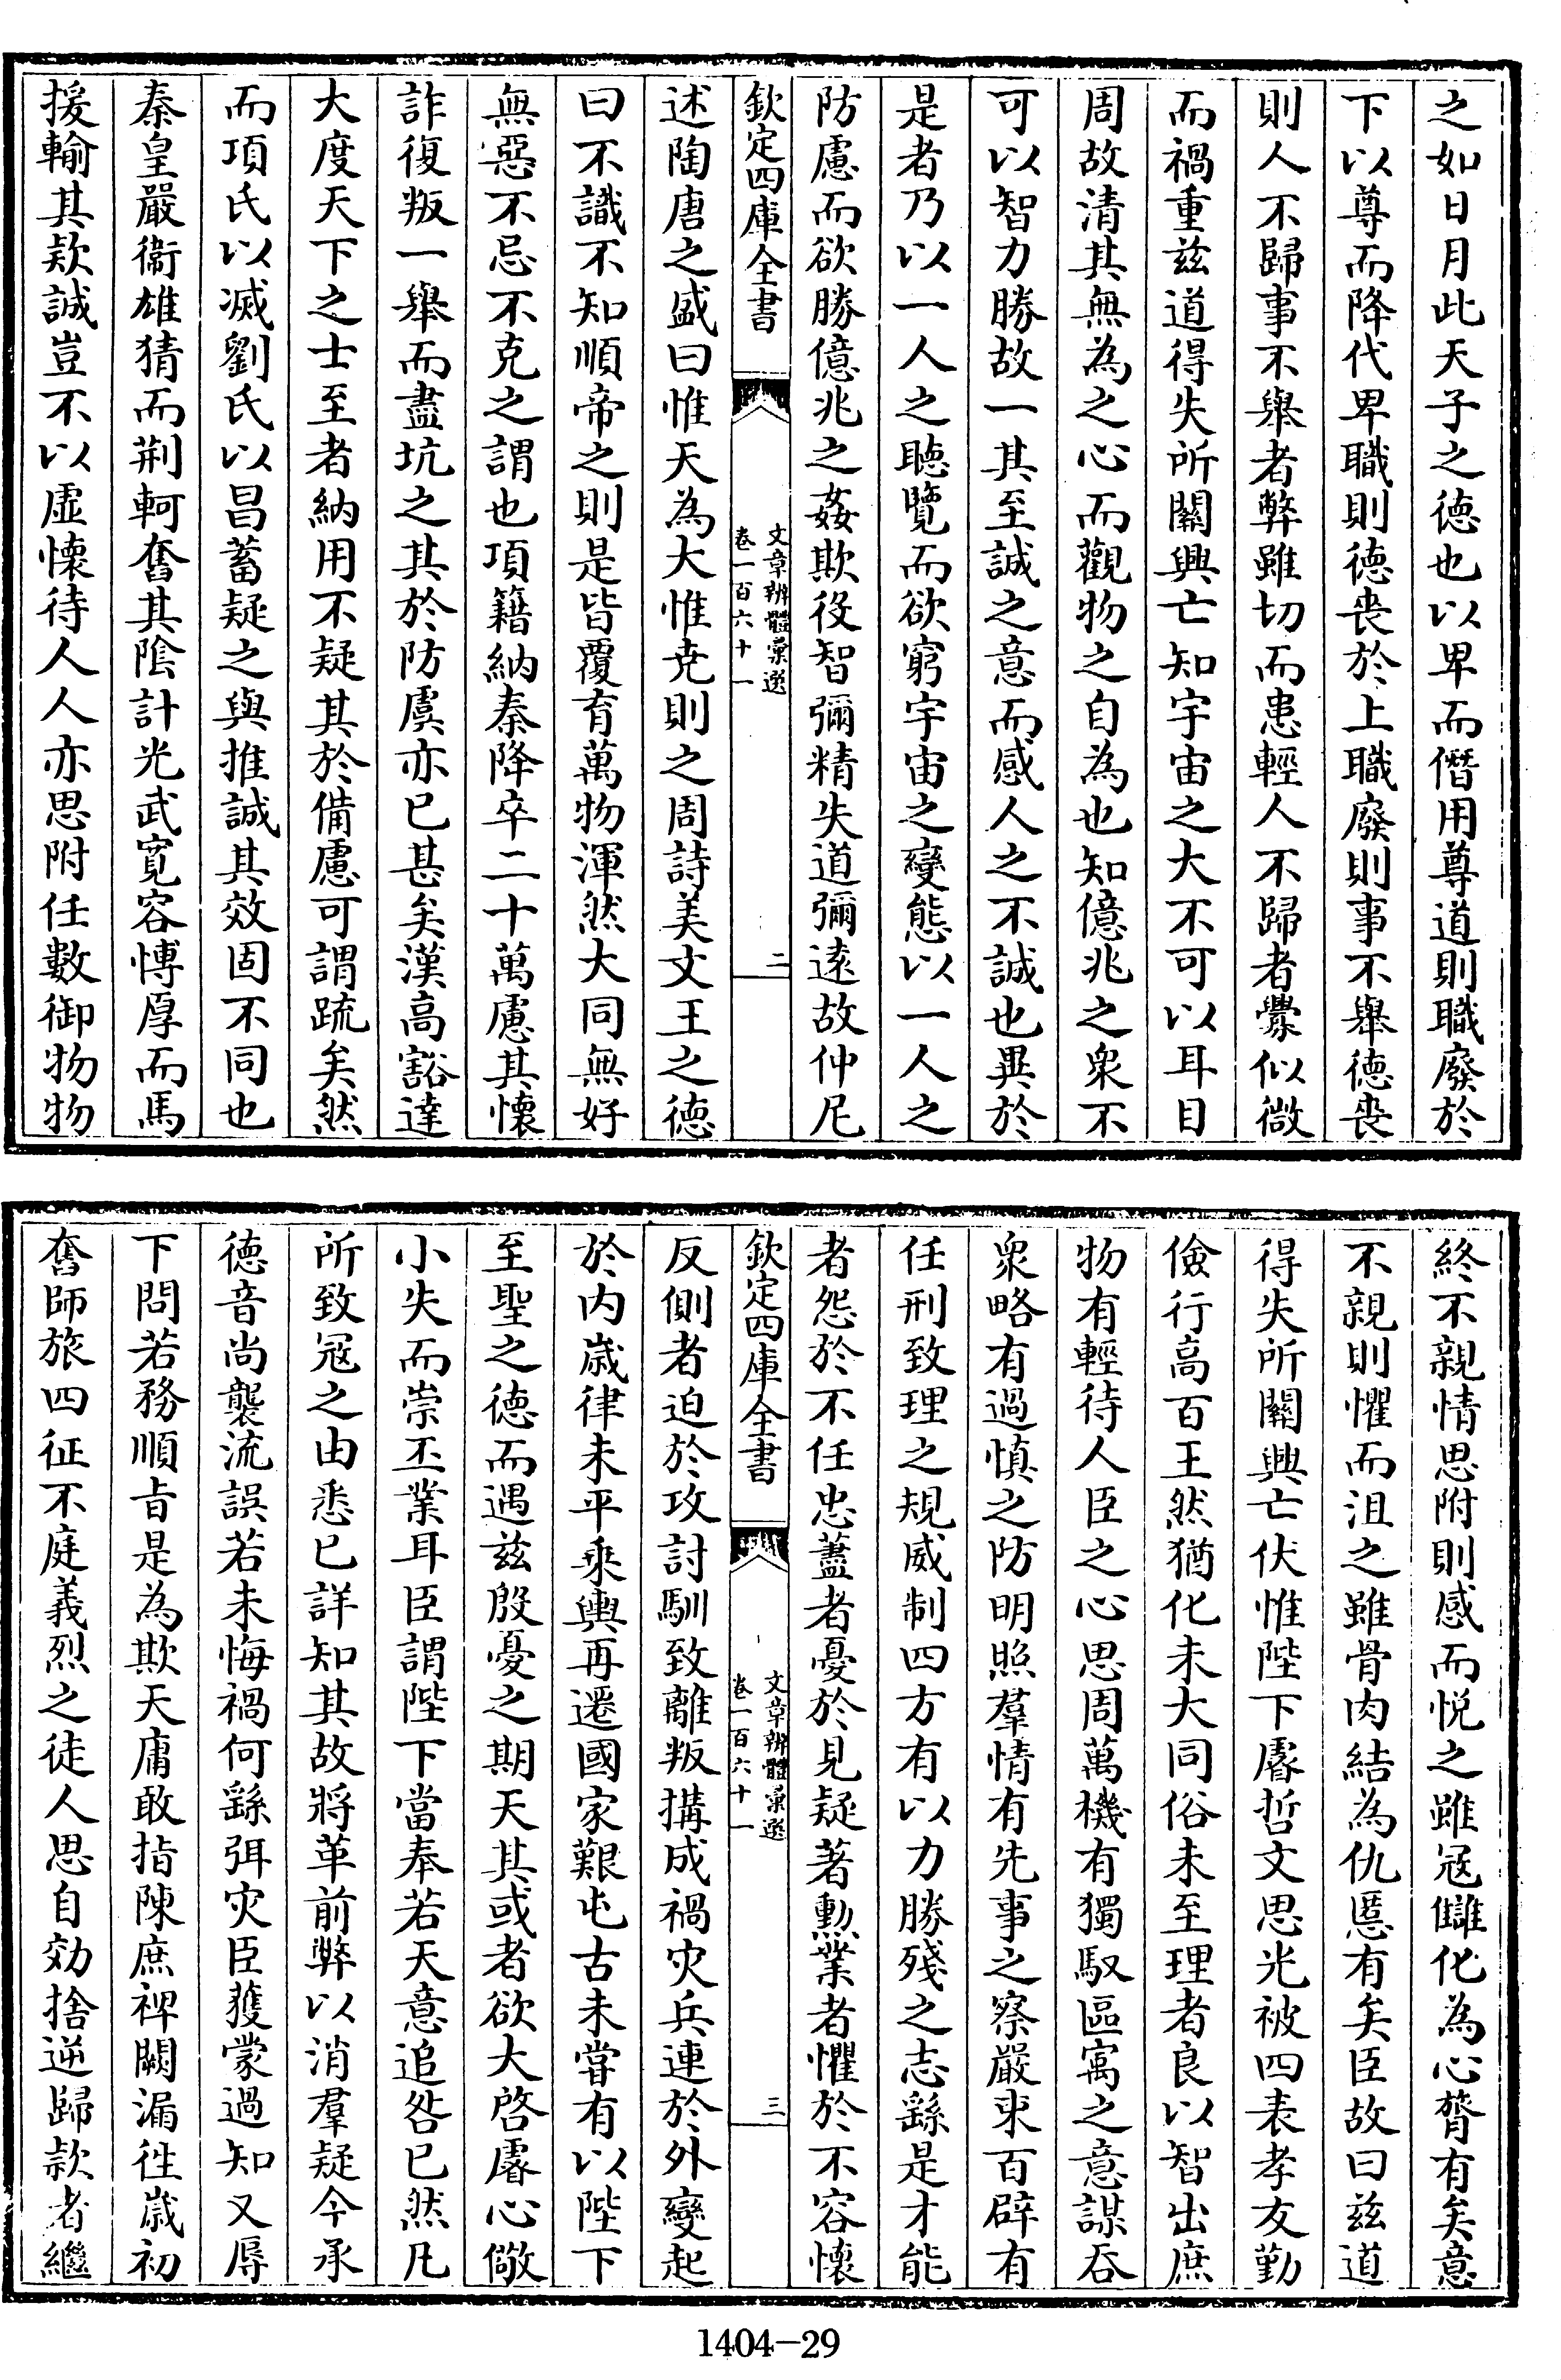 之如日月此天子之徳也以卑而僭用尊道則職廢於
下以尊而降代卑職則徳喪於上職廢則事不舉徳喪
則人不歸事不舉者弊雖切而患輕人不歸者釁似微
而禍重兹道得失所關興亡知宇宙之大不可以耳目
周故清其無為之心而觀物之自為也知億兆之衆不
可以智力勝故一其至誠之意而感人之不誠也異於
是者乃以一人之聽覽而欲窮宇宙之變態以一人之
防慮而欲勝億兆之姦欺役智彌精失道彌逺故仲尼
欽定四庫全書
文章辨體彙選
卷一百六十一
二
述陶唐之盛曰惟天為大惟尭則之周詩美文王之徳
曰不識不知順帝之則是皆覆育萬物渾然大同無好
無惡不忌不克之謂也項籍納秦降卒二十萬慮其懐
詐復叛一舉而盡坑之其於防虞亦已甚矣漢高豁達
大度天下之士至者納用不疑其於備慮可謂疏矣然
而項氏以滅劉氏以昌蓄疑之與推誠其效固不同也
秦皇嚴衞雄猜而荆軻奮其隂計光武寛容博厚而馬
援輸其欵誠豈不以虚懐待人人亦思附任數御物物
終不親情思附則感而悦之雖冦讎化為心膂有矣意
不親則懼而沮之雖骨肉結為仇慝有矣臣故曰兹道
得失所關興亡伏惟陛下睿哲文思光被四表孝友勤
儉行高百王然猶化未大同俗未至理者良以智出庶
物有輕待人臣之心思周萬機有獨馭區寓之意謀吞
衆略有過慎之防明照羣情有先事之察嚴束百辟有
任刑致理之規威制四方有以力勝殘之志繇是才能
者怨於不任忠藎者憂於見疑著勲業者懼於不容懐
欽定四庫全書
文章辨體彙選
卷一百六十一
三
反側者迫於攻討馴致離叛搆成禍灾兵連於外變起
於内嵗律未平乘輿再遷國家艱屯古未嘗有以陛下
至聖之徳而遇兹殷憂之期天其或者欲大啓睿心儆
小失而崇丕業耳臣謂陛下當奉若天意追咎已然凡
所致冦之由悉已詳知其故將革前弊以消羣疑今承
徳音尚襲流誤若未悔禍何繇弭灾臣獲蒙過知又辱
下問若務順㫖是為欺天庸敢指陳庶裨闕漏徃嵗初
奮師旅四征不庭義烈之徒人思自効捨逆歸款者繼
1404-29